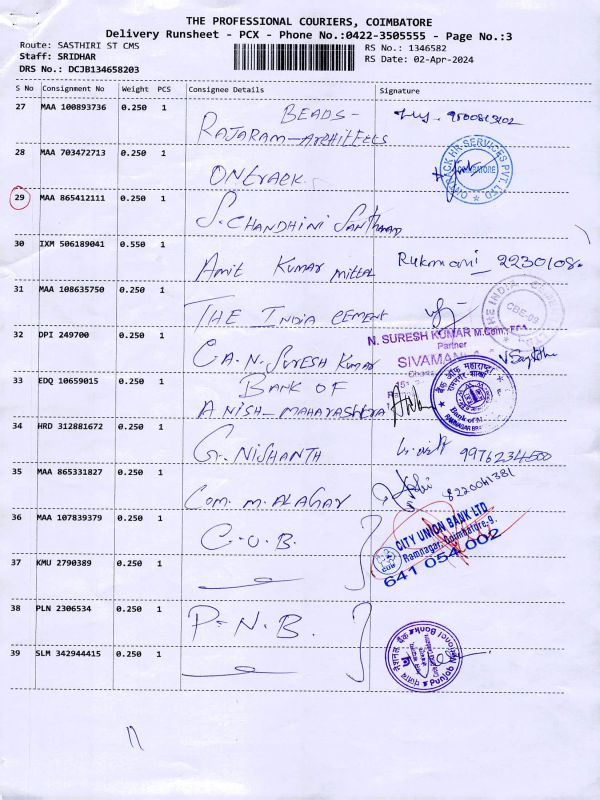 THE PROFESSIONAL COURIERS, COIMBATORE
Delivery Runsheet - PCX - Phone No.:0422-3505555 - Page No.:3
Route: SASTHIRI ST CMS
RS No.: 1346582
Staff: SRIDHAR
RS Date: 02-Apr-2024
DRS No.: DCJB134658203
S No Consignment No Weight PCS Consignee Details Signature
27 MAA 100893736 0.250 1 BEADS-
RAJARAM-
28 MAA 703472713 0.250 1 ONTRACK
29 MAA 865412111 0.250 1 S. CHANDHINI
30 IXM 506189041 0.550 1 Amit Kumar Mittal Rukmani 2230108
31 MAA 108635750 0.250 1 THE INDIA CEMENT
THE INDIA
CBE-09
32 DPI 249700 0.250 1 CA. N. SURESH KUMAR
N. SURESH KUMAR M.Com., FCA
Partner
33 EDQ 10659015 0.250 1 BANK OF
ANISH-MAHARASHTRA
34 HRD 312881672 0.250 1 G. NISHANTH 9976234500
35 MAA 865331827 0.250 1 COM. M. ALAGAR 8220041381
36 MAA 107839379 0.250 1 C.U.B.
CITY UNION BANK LTD
Ramnagar, Coimbatore-9.
641 054 002
37 KMU 2790389 0.250 1
38 PLN 2306534 0.250 1 P.N.B.
39 SLM 342944415 0.250 1